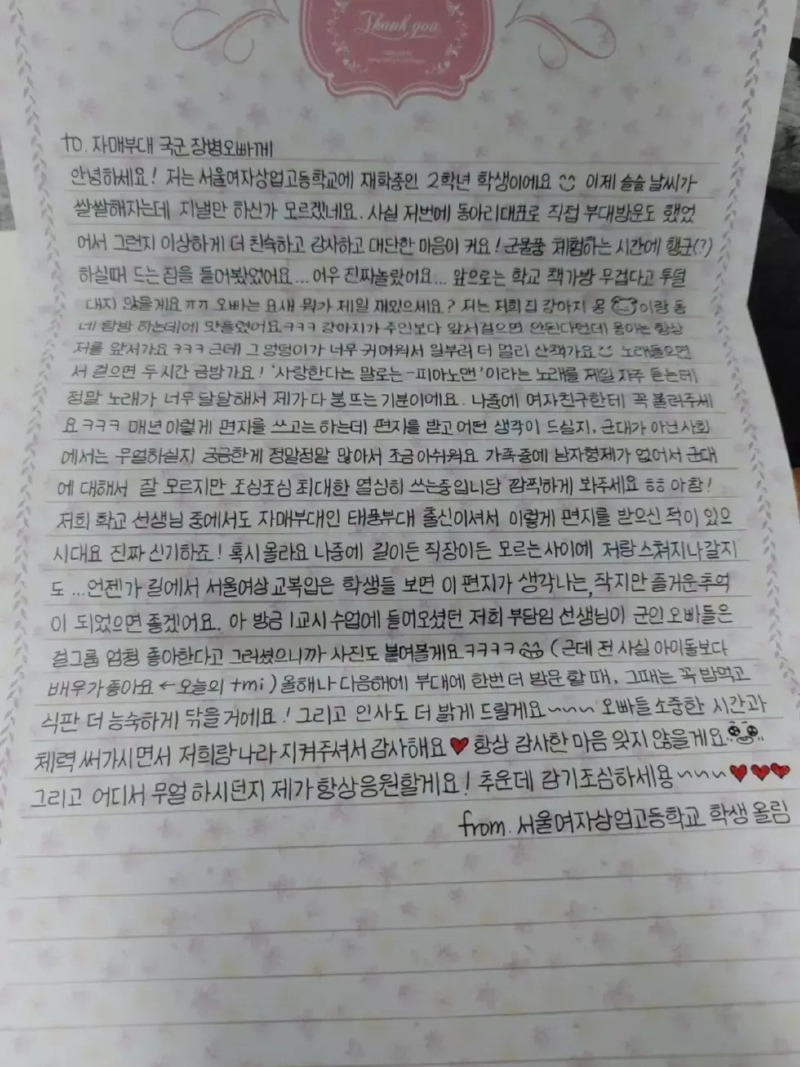 Thank you
to. 자매부대 국군 장병오빠께
안녕하세요! 저는 서울여자상업고등학교에 재학중인 2학년 학생이에요 이제 슬슬 날씨가
쌀쌀해지는데 지낼만 하신가 모르겠네요. 사실 저번에 동아리대표로 직접 부대방문도 했었
어서 그런지 이상하게 더 친숙하고 감사하고 대단한 마음이 커요! 군물품 체험하는 시간에 행군(?)
하실때 드는 짐을 들어봤었어요... 어우 진짜놀랐어요... 앞으로는 학교 책가방 무겁다고 투덜
대지 않을게요ㅠㅠ 오빠는 요새 뭐가 제일 재밌으세요? 저는 저희집 강아지 몽이랑 동
네 탐방 하는데에 맛들렸어요ㅋㅋㅋ 강아지가 주인보다 앞서걸으면 안된다던데 몽이는 항상
저를 앞서가요ㅋㅋㅋ 근데 그 엉덩이가 너무 귀여워서 일부러 더 멀리 산책가요 노래들으면
서 걸으면 두시간 금방가요! '사랑한다는 말로는-피아노맨'이라는 노래를 제일 자주 듣는데
정말 노래가 너무 달달해서 제가 다 붕 뜨는 기분이에요. 나중에 여자친구한테 꼭 불러주세
요ㅋㅋㅋ 매년 이렇게 편지를 쓰고는 하는데 편지를 받고 어떤 생각이 드실지, 군대가 아닌 사회
에서는 무얼하실지 궁금한게 정말정말 많아서 조금 아쉬워요 가족중에 남자형제가 없어서 군대
에 대해서 잘 모르지만 조심조심 최대한 열심히 쓰는중입니당 깜찍하게 봐주세요ㅎㅎ 아참!
저희 학교 선생님 중에서도 자매부대인 태풍부대 출신이셔서 이렇게 편지를 받으신 적이 있으
시대요 진짜 신기하죠! 혹시 몰라요 나중에 길이든 직장이든 모르는사이에 저랑 스쳐지나갈지
도 ... 언젠가 길에서 서울여상 교복입은 학생들 보면 이 편지가 생각나는, 작지만 즐거운 추억
이 되었으면 좋겠어요. 아 방금 1교시 수업에 들어오셨던 저희 부담임 선생님이 군인 오빠들은
걸그룹 엄청 좋아한다고 그러셨으니까 사진도 붙여볼게요ㅋㅋㅋㅋ (근데 전 사실 아이돌보다
배우가 좋아요 ← 오늘의 tmi) 올해나 다음해에 부대에 한번 더 방문 할 때, 그때는 꼭 밥먹고
식판 더 능숙하게 닦을거에요! 그리고 인사도 더 밝게 드릴게요~~~ 오빠들 소중한 시간과
체력 써가시면서 저희랑 나라 지켜주셔서 감사해요♥ 항상 감사한 마음 잊지 않을게요
그리고 어디서 무얼 하시던지 제가 항상 응원할게요! 추운데 감기조심하세용~~~♥♥♥
from. 서울여자상업고등학교 학생 올림